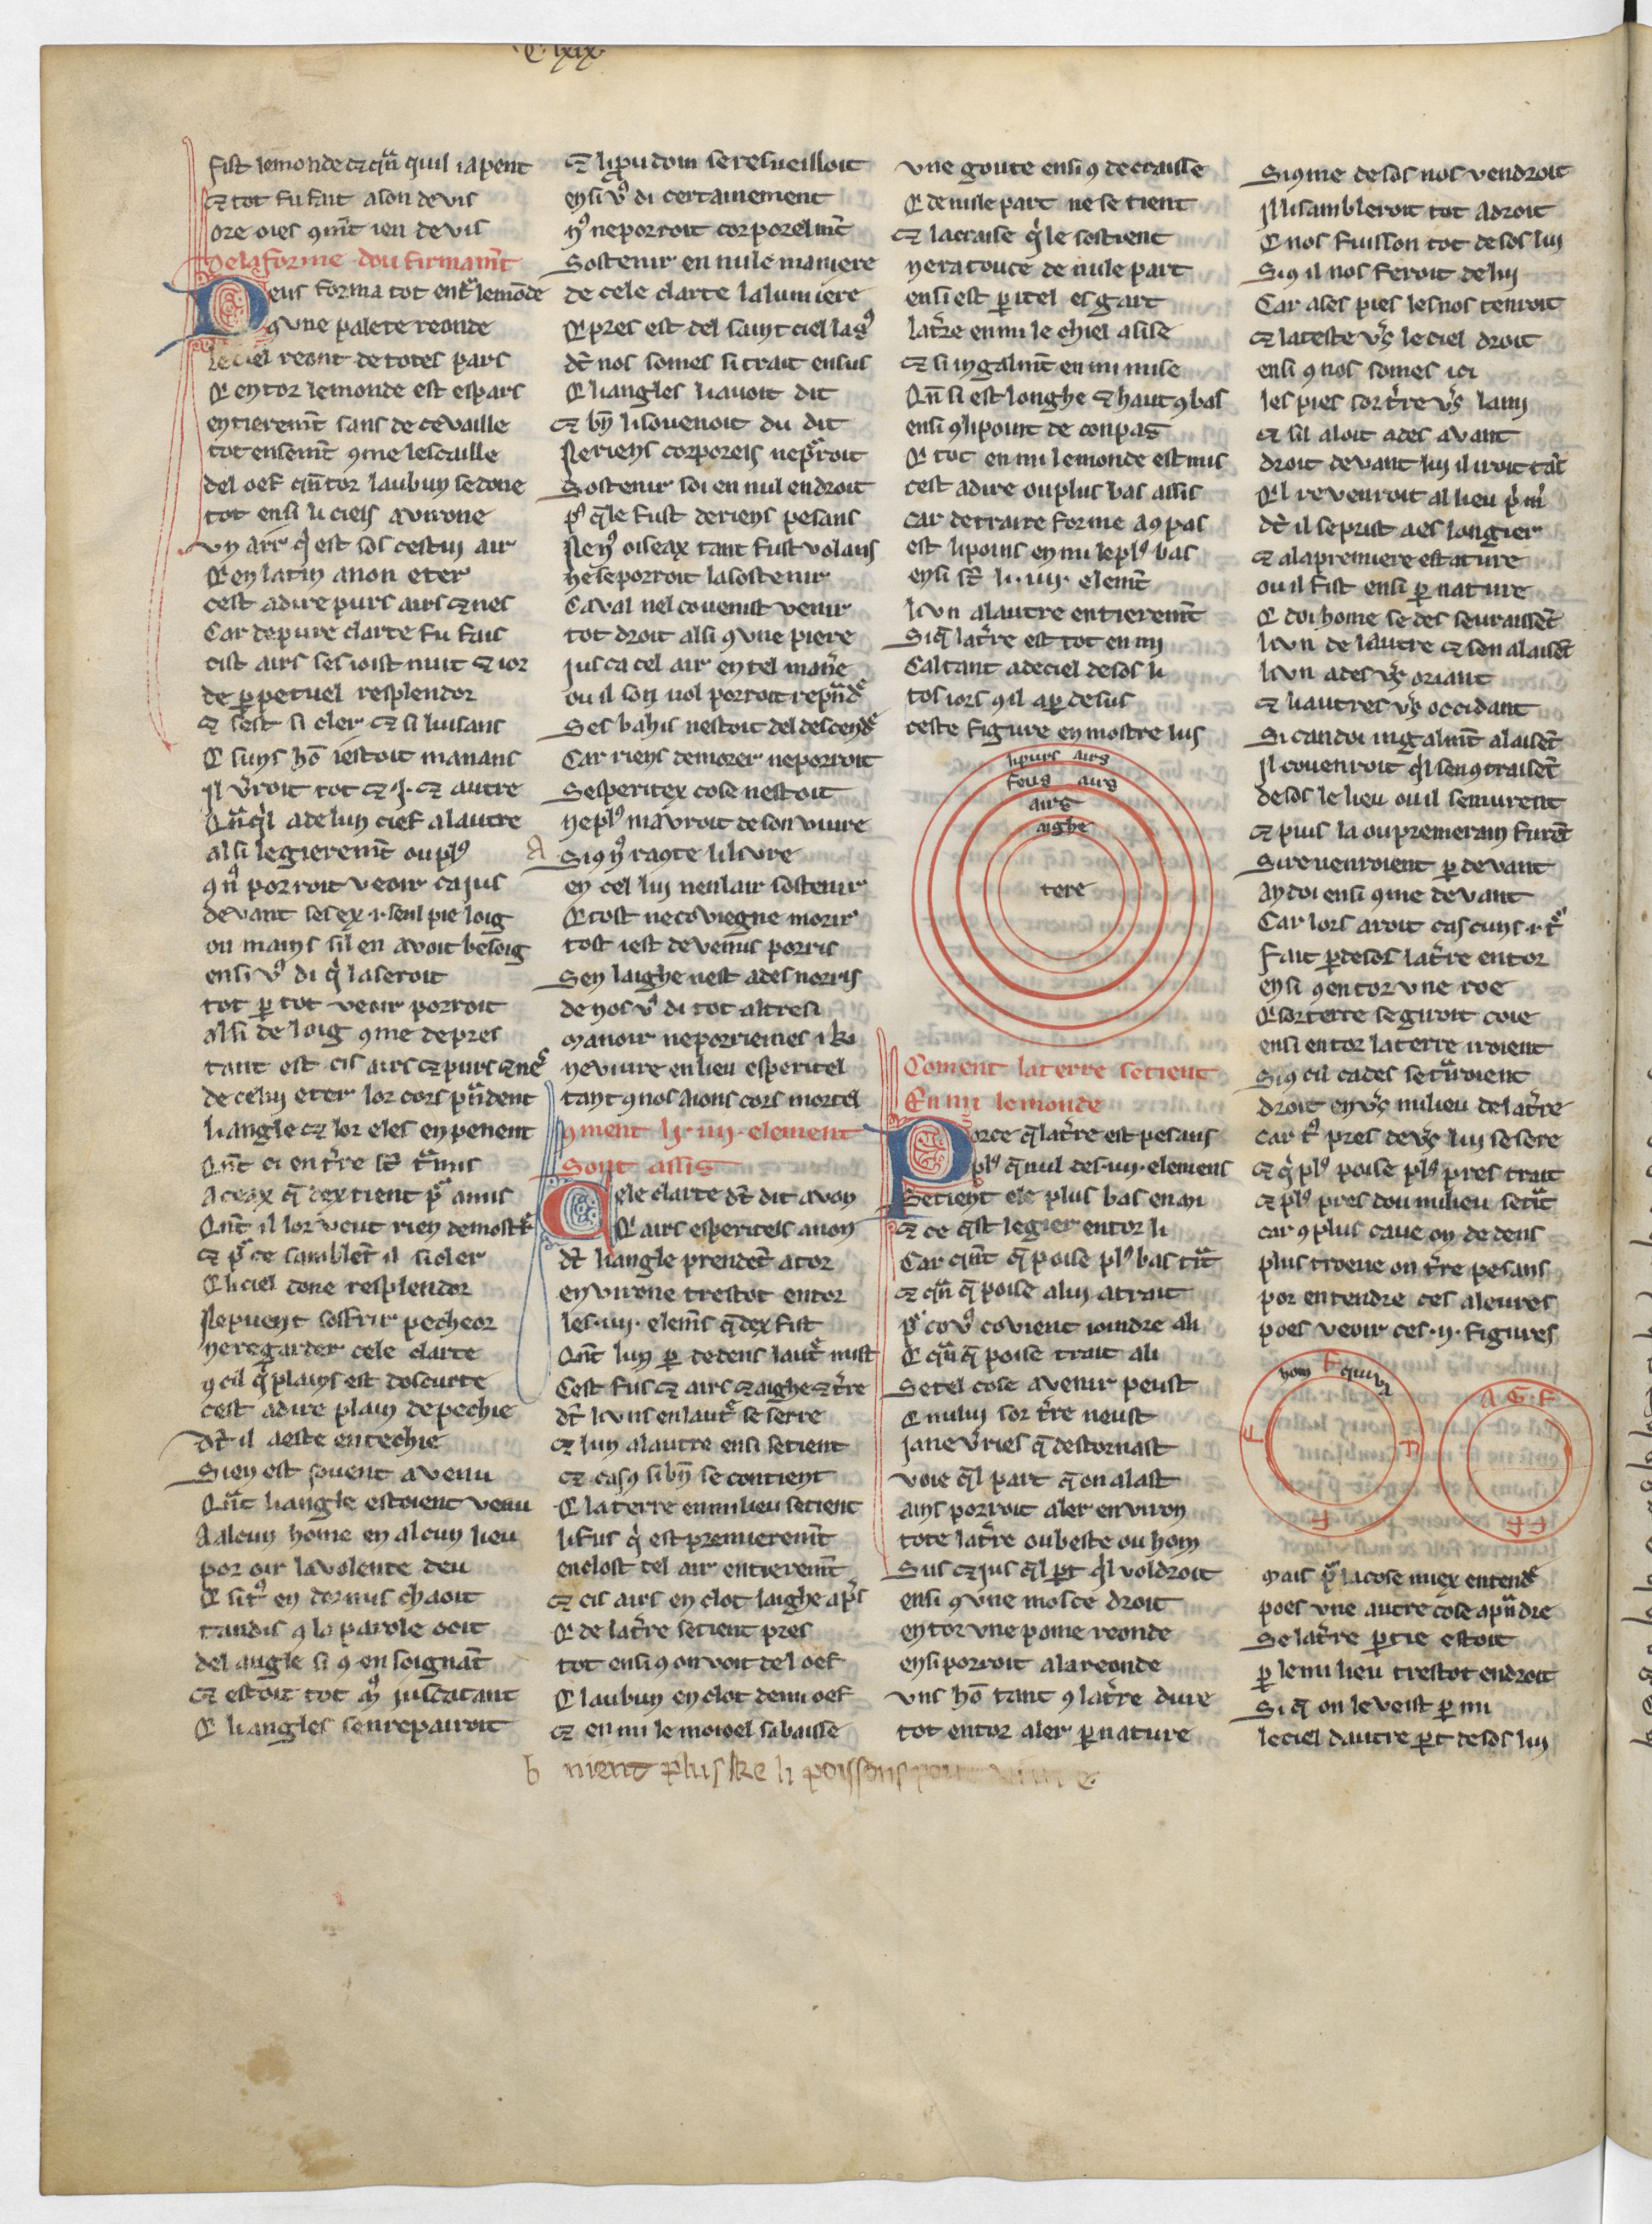 C·lxix·
fist le monde ⁊ qͣn quil i apent
⁊ tot fu fait a son devis
ore oies ꝯmt̄ ien devis
De la forme dou firmamt̄
Deus forma tot ent͛ le mōde
ꝯ vne palete reonde
le ciel reont de totes pars
Q̄ en tor le monde est espars
entierem̄t sans decevaille
tot ensem̄t ꝯme lescaille
del oef qn̄tor laubun se done
tot ensi li ciels avirone
vn air qͥ est sos cestui air
Q̄ en latin a non eter
cest a dire purs airs ⁊ nes
Car de pure clarte fu fais
cist airs ses ioist nuit ⁊ ior
de ꝑpetuel resplendor
⁊ sest si cler ⁊ si luisans
Q̄ suns hō iestoit manans
Il v̄roit tot ⁊ .i. ⁊ autre
Qͣnqͥl a de lun cief a lautre
alsi legierem̄t ou plꝰ
ꝯ nꝰ porroit veoir ca ius
devant ses ex .i. seul pie loig
ou mains sil en avoit besoig
ensi vꝰ di qͥ la seroit
tot ꝑ tot veoir porroit
alsi de loig ꝯme de pres
tant est cis airs ⁊ purs ⁊ nes
de celui eter lor cors pͣndent
li angle ⁊ lor eles en penent
Qn̄t ci en tr̄re st̄ tͣmis
A ceax q̄ dex tient pͬ amis
Qn̄t il lor veut rien demostr͛
⁊ pͬ ce samblet il si cler
Q̄ li ciel done resplendor
Ne puent sosfrir pecheor
ne regarder cele clarte
ꝯ cil q̄ plains est doscurte
cest a dire plain de pechie
dt̄ il a este entechie
Si en est sovent avenu
Qͣnt li angle estoient venu
A alcun home en alcun lieu
por oir la volente deu
Q̄ sitꝰ en dormis chaoit
tandis ꝯ la parole ooit
del angle si ꝯ en soignāt
⁊ estoit tot mꝰ iuscatant
Q̄ li angles sen repairoit
⁊ li pͥudom se resueilloit
ensi vꝰ di certainement
nꝰ ne porroit corporelm̄t
Sostenir en nule maniere
de cele clarte la lumiere
Q̄ pres est del saint ciel lasꝰ
dt̄ nos somes si trait ensus
Q̄ li angles li avoit dit
⁊ bn̄ li sovenoit du dit
Ne riens corporels ne pͬroit
Sostenir soi en nul endroit
pꝰ q̄le fust de riens pesans
Ne nꝰ oiseax tant fust volans
ne se porroit la sostenir
Caval nel covenist venir
tot droit alsi ꝯ vne piere
jusca cel air en tel man̄e
ou il son vol porroit rep̄nd͛
Ses bahis nestoit del descend͛
Car riens demorer ne porroit
Sesperitex cose nestoit
ne plꝰ mavroit de son vivre
A Si ꝯ nꝰ raꝯte li livre
en cel lui nen lair sostenir
Q̄ tost ne coviegne morir
tost iest devenus porris
Sen laighe nest ades norris
de nos vꝰ di tot altresi
manoir ne porriemes iki
ne vivre en lieu esperitel
tant ꝯ nos aions cors mortel
ꝯment li .iiij. element
Sont assis
Cele clarte dt̄ dit avon
Q̄ airs esperitels a non
dt̄ li angle prendet ator
en virone trestot entor
les .iiij. elem̄s q̄ dex fist
Qn̄t lun ꝑ dedens laut͛ mist
Cest fus ⁊ airs ⁊ aighe ⁊ tr̄re
dt̄ li vns en laut͛ se serre
⁊ lun a lautre ensi se tient
⁊ casꝯ si bn̄ se contient
Q̄ la terre en milieu se tient
li fus qͥ est premierem̄t
enclost cel air entierem̄t
⁊ cis airs en clot laighe aps̄
Q̄ de la tr̄re se tient pres
tot ensi ꝯ on voit del oef
Q̄ laubun en clot demi oef
⁊ en mi le moioel sabaisse
b nient plus ke li poissons poit vivre
vne goute ensi ꝯ de craisse
Q̄ de nule part ne se tient
⁊ la craisse qͥ le sostient
ne ra touce de nule part
ensi est ꝑ itel esgart
la tr̄re en mi le chiel asise
⁊ si ingalm̄t en mi mise
Qn̄ si est longhe ⁊ haut ꝯ bas
ensi ꝯ li point de conpas
Q̄ tot en mi le monde est mis
cest a dire ou plus bas assis
car de traire forme a ꝯpas
est li poins en mi le plꝰ bas
ensi st̄ li .iiij. elem̄t
li vn a lautre entierem̄t
Si q̄ la tr̄re est tot en mi
Caltant a de ciel desos li
tos iors ꝯ il a ꝑ desus
ceste figure en mostre lus
li purs airs
feus airs
airs
aighe
tere
Coment la terre se tient
En mi le monde
Porce q̄ la tr̄re est pesans
plꝰ q̄ nul des .iiij. elemens
Se tient ele plus bas en mi
⁊ ce q̄st legier entor li
Car qn̄t q̄ poise plꝰ bas tͣit
⁊ qͣn q̄ poise a lui atrait
pͬ co vꝰ covient ioindre ali
Q̄ qͣn q̄ poise trait a li
Se tel cose avenir peust
Q̄ nului sor tr̄re neust
ja ne v̄ries q̄ destornast
voie q̄l part q̄ on alast
ains porroit aler en viron
tote la tr̄re ou beste ou hom
Sus ⁊ jus q̄l ꝑt qͥl voldroit
ensi ꝯ vne mosce droit
en tor vne pome reonde
ensi porroit a la reonde
vns hō tant ꝯ la tr̄re dure
tot entor aler ꝑ nature
Si ꝯme desos nos vendroit
Il li sambleroit tot adroit
Q̄ nos fuisson tot desos lui
Si ꝯ il nos feroit de lui
Car a ses pies les nos tenroit
⁊ la teste vs̄ le ciel droit
ensi ꝯ nos somes ici
les pies sor tr̄re vs̄ laiui
⁊ sil aloit ades avant
droit devant lui il iroit tāt
Q̄l revenroit al lieu pͥmͥ
dt̄ il se prist a eslongier
⁊ a la premiere estature
ou il fist ensi ꝑ nature
Q̄ doi home se desseuraissēt
li vn de lautre ⁊ sen alaisēt
li vn ades vs̄ oriant
⁊ li autres vs̄ occidant
Si can doi ingalm̄t alaisēt
Il covenroit qͥl senꝯtraisēt
desos le lieu ou il semurent
⁊ puis la ou premerain furēt
Si revenroient ꝑ devant
An doi ensi ꝯme devant
Car lors aroit cascuns .i. tͬ
fait ꝑ desos la tr̄re entor
ensi ꝯ en tor vne roe
Q̄ sor terre se giroit coie
ensi entor la terre iroient
Si ꝯ cil cades se tͣiroient
droit en vs̄ milieu de la tr̄re
car tꝰ pres devs̄ lui se sere
⁊ qͥ plꝰ poise plꝰ pres trait
⁊ plꝰ pres dou milieu se tͣit
car ꝯ plus cave on dedens
plus troeve on tr̄re pesans
por entendre ces aleures
poes veoir ces .ij. figures
hom F qui va
F F F
A G F
F F
mais pͬ la cose miex entend͛
poes vne autre cose apͣndre
Se la tr̄re ꝑcie estoit
ꝑ le milieu trestot endroit
Si q̄ on le veist ꝑ mi
le ciel dautre ꝑt desos lui